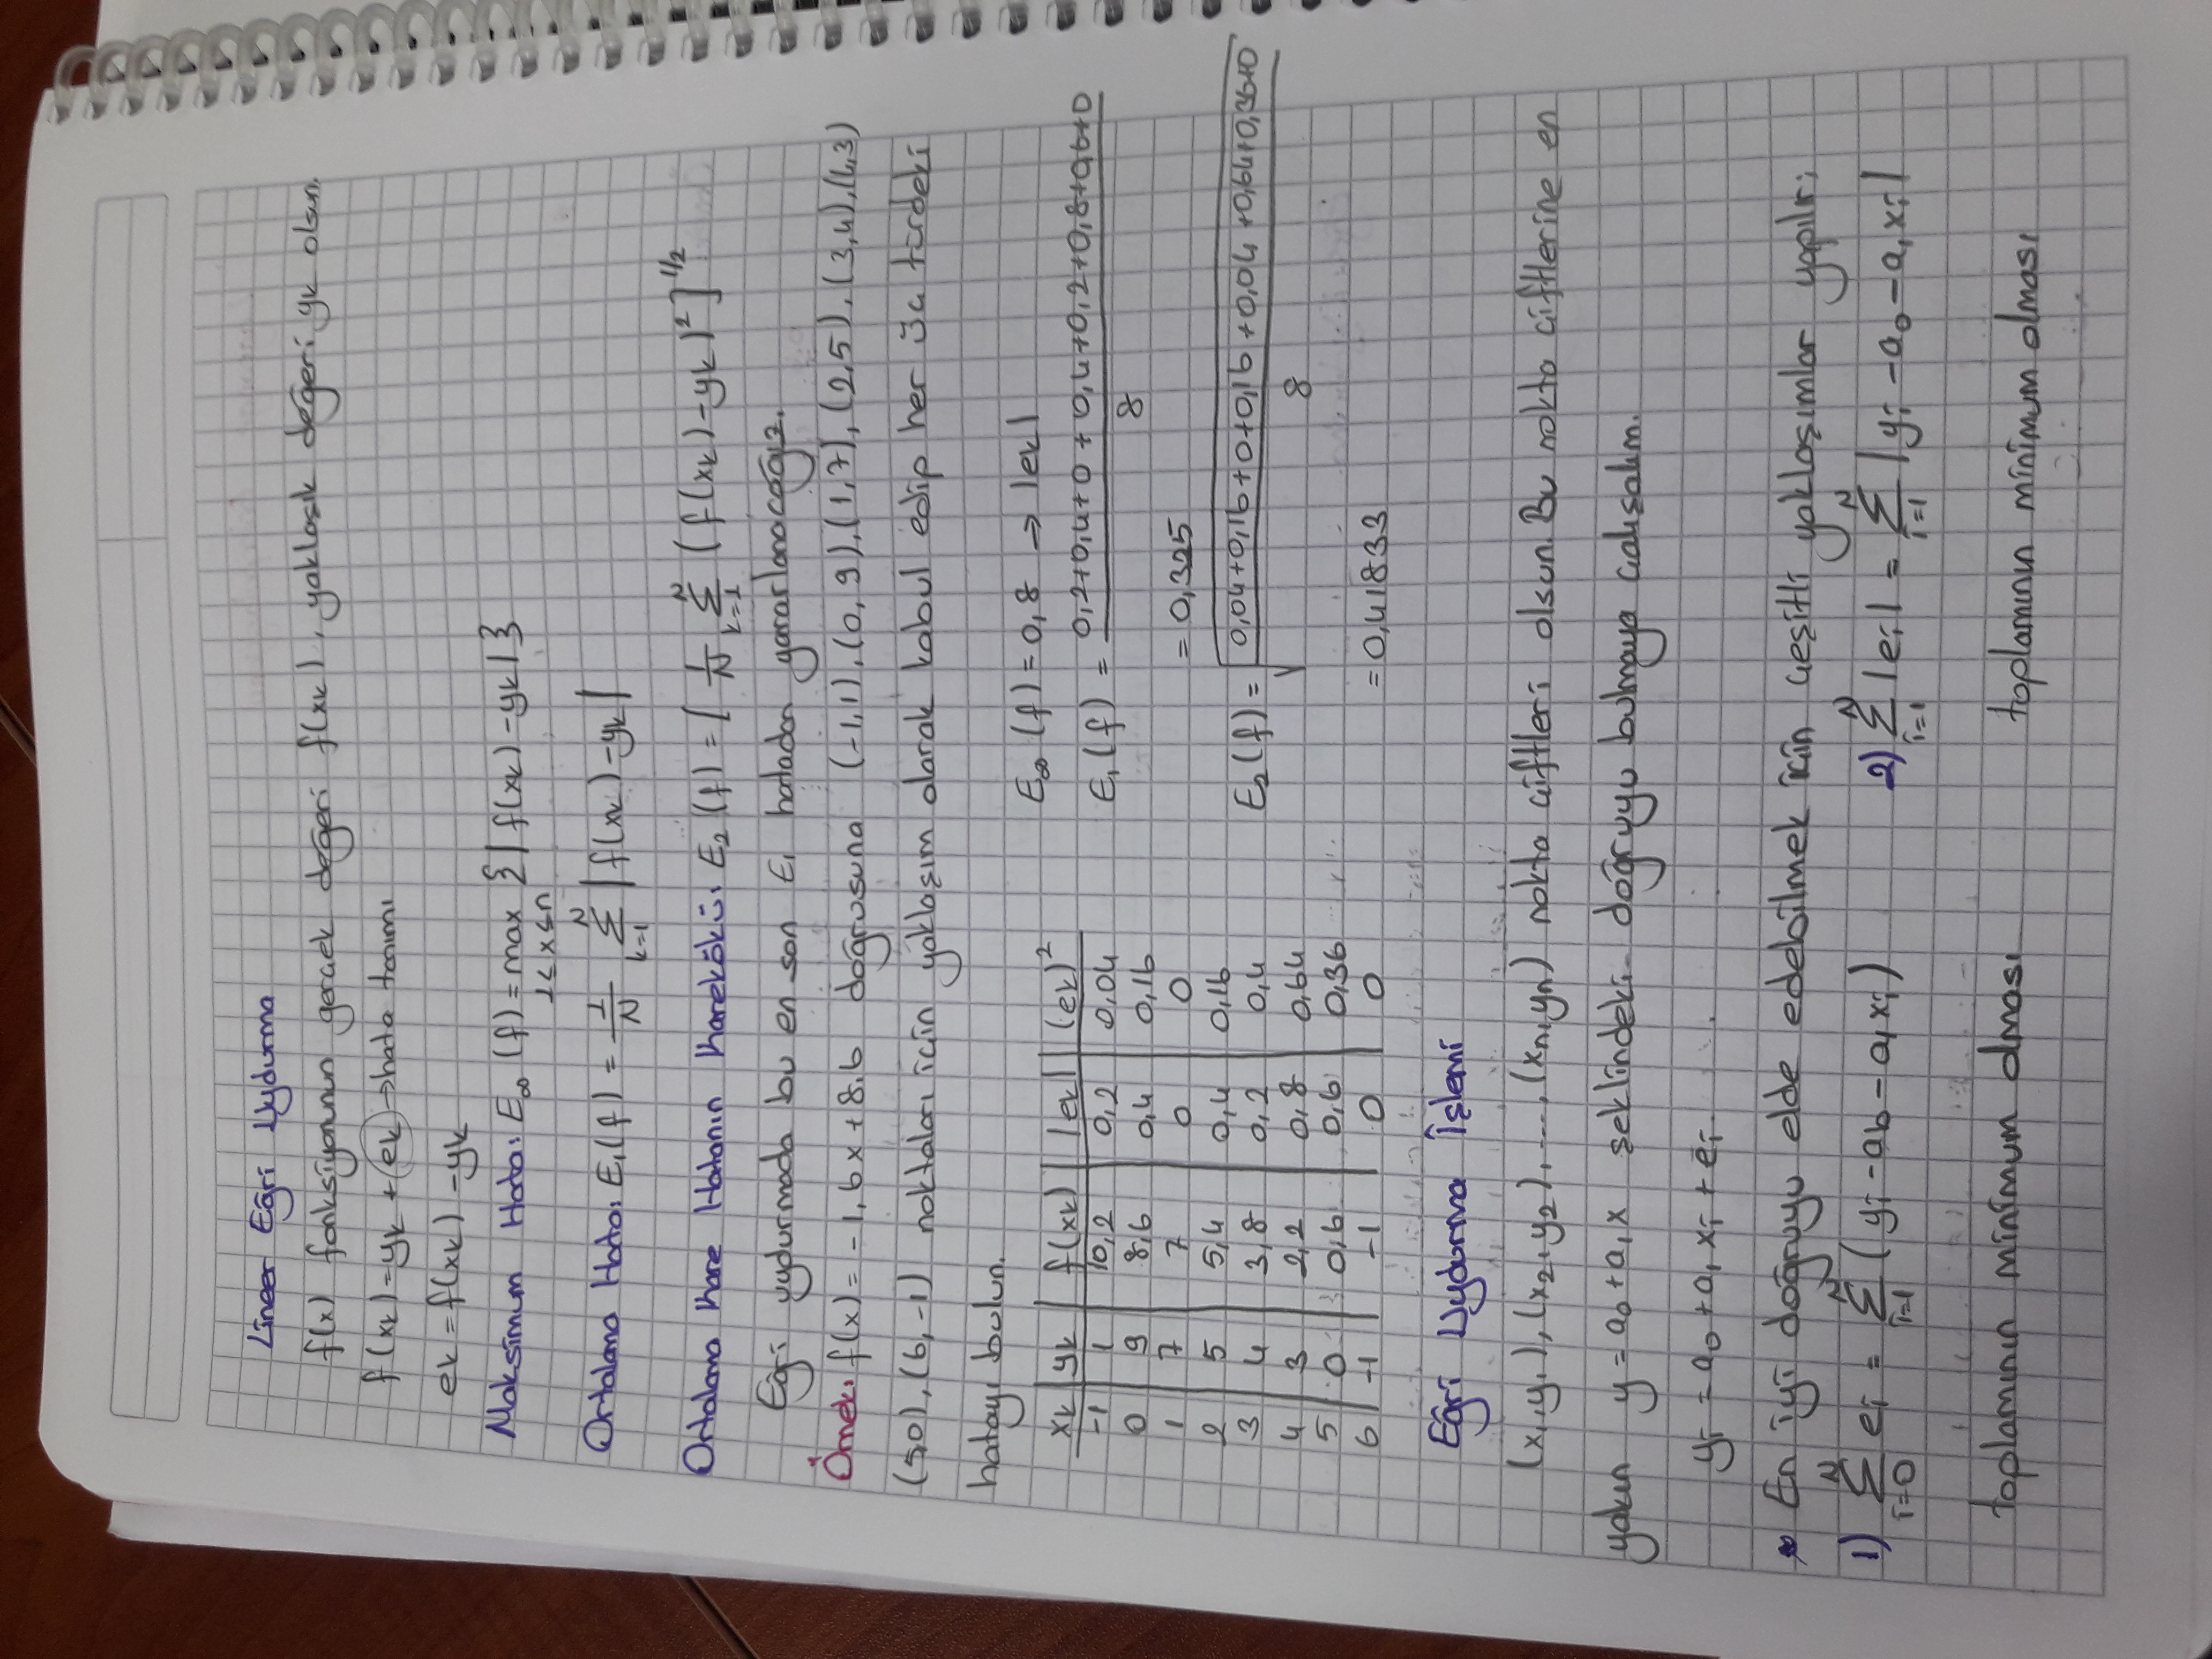 Lineer Eğri Uydurma
f(x) fonksiyonunun gerçek değeri f(xk), yaklaşık değeri yk olsun.
f(xk)=yk + ek → hata tanımı
ek = f(xk) - yk
Maksimum Hata: E∞ (f) = max {| f(xk) - yk | }
1≤ x ≤n
Ortalama Hata: E₁(f) = 1/N ∑ k=1 N | f(xk) - yk |
Ortalama Kare Hatanın Karekökü: E₂ (f) = [ 1/N ∑ k=1 N (f(xk) - yk)² ]^1/2
Eğri uydurmada bu en son E₁ hatadan yararlanacağız.
Örnek: f(x) = -1,6x + 8,6 doğrusuna (-1,1), (0, 9), (1,7), (2,5), (3,4), (4,3)
(5,0), (6, -1) noktaları için yaklaşım olarak kabul edip her üç türdeki
hatayı bulun.
E∞ (f) = 0,8 → |ek|
xk | yk | f(xk) | |ek| | (ek)²
-1 | 1 | 10,2 | 0,2 | 0,04
E₁ (f) = 0,2+0,4+0+0,4+0,2+0,8+0,6+0 / 8
0 | 9 | 8,6 | 0,4 | 0,16
1 | 7 | 7 | 0 | 0
= 0,325
2 | 5 | 5,4 | 0,4 | 0,16
3 | 4 | 3,8 | 0,2 | 0,4
E₂ (f) = √ 0,04+0,16+0+0,16+0,04+0,64+0,36+0 / 8
4 | 3 | 2,2 | 0,8 | 0,64
5 | 0 | 0,6 | 0,6 | 0,36
6 | -1 | -1 | 0 | 0
= 0,41833
Eğri Uydurma İşlemi
(x₁,y₁), (x₂,y₂), ..., (xn,yn) nokta çiftleri olsun. Bu nokta çiftlerine en
yakın y = a₀ + a₁x şeklindeki doğruyu bulmaya çalışalım.
yi = a₀ + a₁ xi + ei
* En iyi doğruyu elde edebilmek için çeşitli yaklaşımlar yapılır;
1) ∑ i=0 N ei = ∑ i=1 N (yi - a₀ - a₁xi) 2) ∑ i=1 N |ei| = ∑ i=1 N |yi - a₀ - a₁xi|
toplamının minimum olması toplamının minimum olması